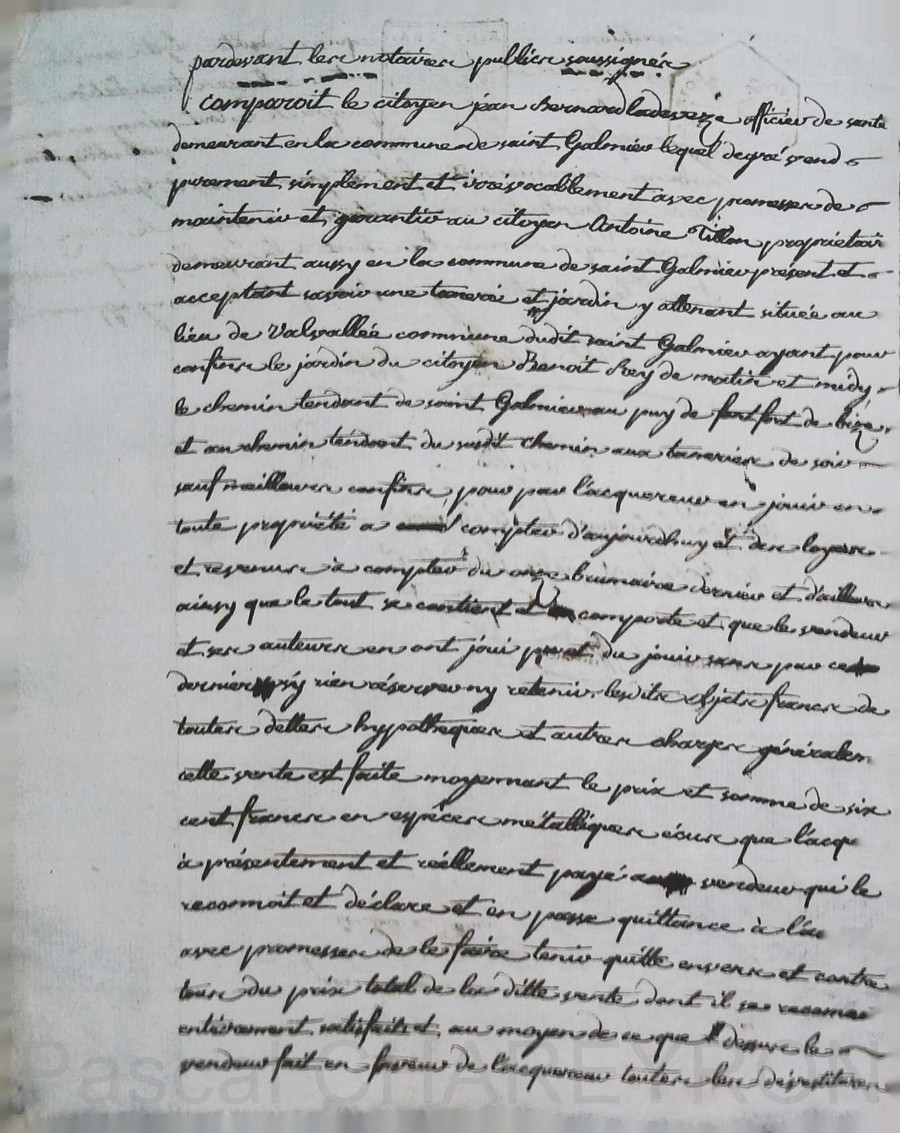 pardevant les notaires publics soussignés
comparoit le citoyen jean Bernard ladeveze officier de santé
demeurant en la commune de saint Galmier lequel degré vend
purement, simplement et irrévocablement avec promesses de
maintenir et garantir au citoyen Antoine Tillon proprietair
demeurant aussy en la commune de saint Galmier présent et
acceptant savoir une tanerie et jardin y attenant située au
lieu de Valvallée commune dudit saint Galmier ayant pour
confins le jardin du citoyen Benoit Rey de matin et midy
le chemin tendant de saint Galmier au puy de fontfort de bize,
et au chemin tendant du susdit chemin aux taneries de soir
sauf meilleurs confins, pour par l'acquereur en jouir en
toute propriété a compter d'aujourdhuy et des loyers
et revenus à compter du onze brumaire dernier et d'ailleurs
ainsy que le tout se contient et comporte et que le vendeur
et ses auteurs en ont joui et du jouir sans par ce
dernier sy rien réserver ny retenir, lesdits objets francs de
toutes dettes hypotheques et autres charges générales
cette vente est faite moyennant le prix et somme de six
cent francs en espèces métalliques écus que l'acqu
à présentement et réellement payé vendeur qui le
reconnoit et déclare et en passe quittance à l'ac
avec promesses de le faire tenir quitte envers et contre
tous du prix total de la ditte vente dont il se reconnoi
entièrement satisfait et au moyen de ce que dessus le
vendeur fait en faveur de l'acquereur toutes les dévestitures
Pascal CHAREYRON